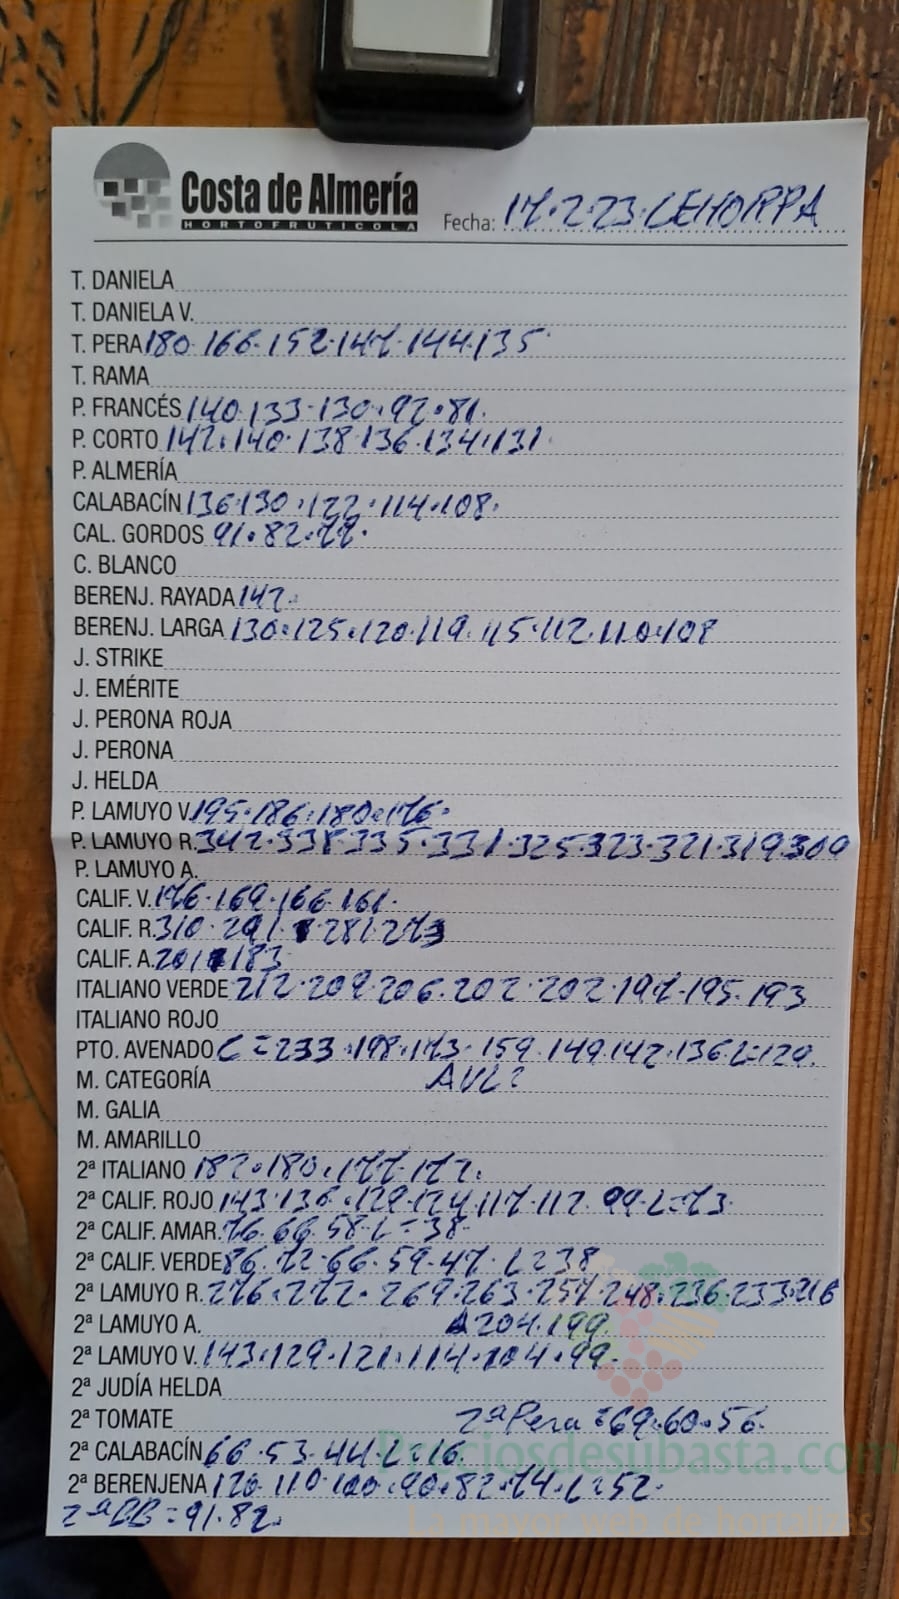 Costa de Almería
HORTOFRUTICOLA
Fecha: 17.2.23. LEHORPPA
T. DANIELA
T. DANIELA V.
T. PERA 180.166.152.147.144.135
T. RAMA
P. FRANCÉS 140.133.130.92.81.
P. CORTO 142.140.138.136.134.131.
P. ALMERÍA
CALABACÍN 136.130.122.114.108.
CAL. GORDOS 91.82.77.
C. BLANCO
BERENJ. RAYADA 142.
BERENJ. LARGA 130.125.120.119.115.112.110.108
J. STRIKE
J. EMÉRITE
J. PERONA ROJA
J. PERONA
J. HELDA
P. LAMUYO V. 195.186.180.176.
P. LAMUYO R. 342.338.335.331.325.323.321.319.309
P. LAMUYO A.
CALIF. V. 176.169.166.161.
CALIF. R. 310.291.281.273
CALIF. A. 201.183
ITALIANO VERDE 212.209.206.202.202.197.195.193
ITALIANO ROJO
PTO. AVENADO C=233.198.173.159.149.142.136.L=120.
M. CATEGORÍA
M. GALIA
M. AMARILLO
2ª ITALIANO 182.180.177.172.
2ª CALIF. ROJO 143.136.129.124.117.112.99.L=73.
2ª CALIF. AMAR. 76.66.58.L=38
2ª CALIF. VERDE 86.72.66.59.47.L=38
2ª LAMUYO R. 276.272.269.263.257.248.236.233.216
2ª LAMUYO A. 204.199.
2ª LAMUYO V. 143.129.121.114.104.99.
2ª JUDÍA HELDA
2ª TOMATE 2ª Pera=69.60.56.
2ª CALABACÍN 66.53.44.L=16.
2ª BERENJENA 120.110.100.90.82.74.L=52.
2ª BB=91.82.
Preciosdesubasta.com
La mayor web de hortalizas